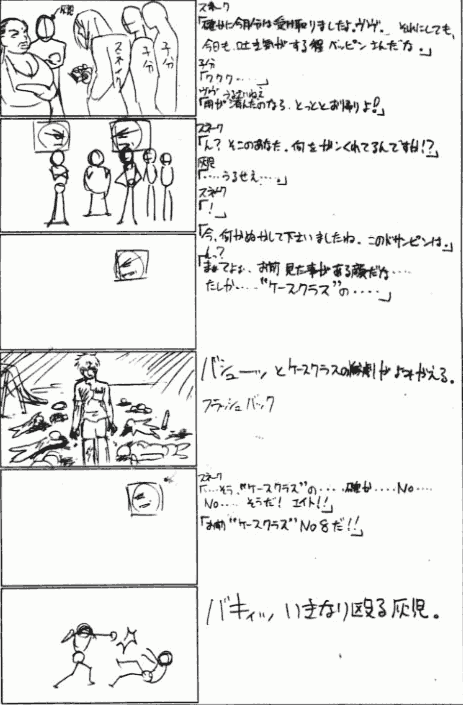 灰児
スネイク
子分
子分
スネーク
「確かに今月分は受け取りましたよ、ヴヴ。 それにしても、
今日も、吐き気がする程 ベッピンさんだな。」
子分
「ククク……」
ヴヴ うるせいねえ
「用が済んだのなら、とっととお帰りよ!」
スネーク
「ん? そこのあなた、何をガンくれてるんですか!?」
灰児
「……うるせえ…。」
スネーク
「!」
「今、何かぬかして下さいましたね、このドサンピンは。」
ん?
「まてよ、お前 見た事がある顔だな……
たしか……"ケースクラス"の……」
バシューッ とケースクラスの惨劇がよみがえる。
フラッシュバック
スネーク
「…そう、"ケースクラス"の……確か……No……
No…… そうだ! エイト!!」
「お前"ケースクラス"No8だ!!」
バキィッ、いきなり殴る灰児。